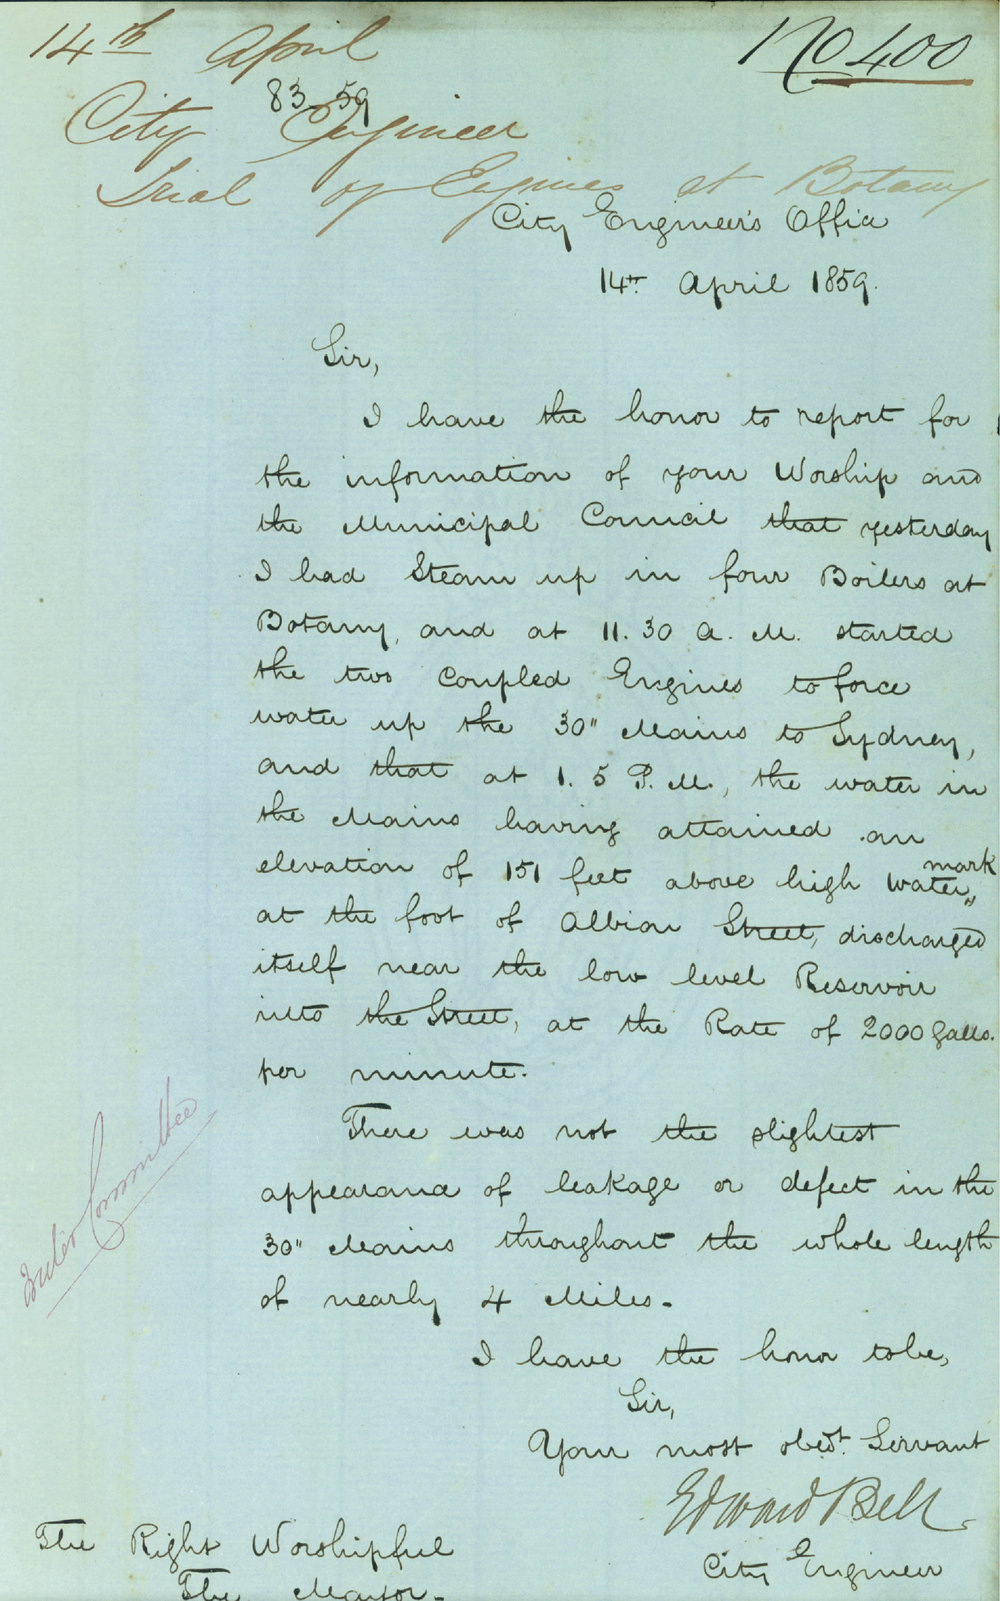 14th April
No 400
83-59
City Engineer
Trial of Engines at Botany
City Engineer's Office
14th April 1859.
Sir,
I have the honor to report for
the information of your Worship and
the Municipal Council that yesterday
I had Steam up in four Boilers at
Botany, and at 11.30 A.M. started
the two Coupled Engines to force
water up the 30" Mains to Sydney,
and that at 1.5 P.M., the water in
the Mains having attained an
elevation of 151 feet above high water mark
at the foot of Albion Street, discharged
itself near the low level Reservoir
into the Street, at the Rate of 2000 Galls.
per minute.
There was not the slightest
appearance of leakage or defect in the
30" Mains throughout the whole length
of nearly 4 Miles.
Committee
I have the honor to be,
Sir,
Your most obedt. Servant
Edward Bell
City Engineer
The Right Worshipful
The Mayor.